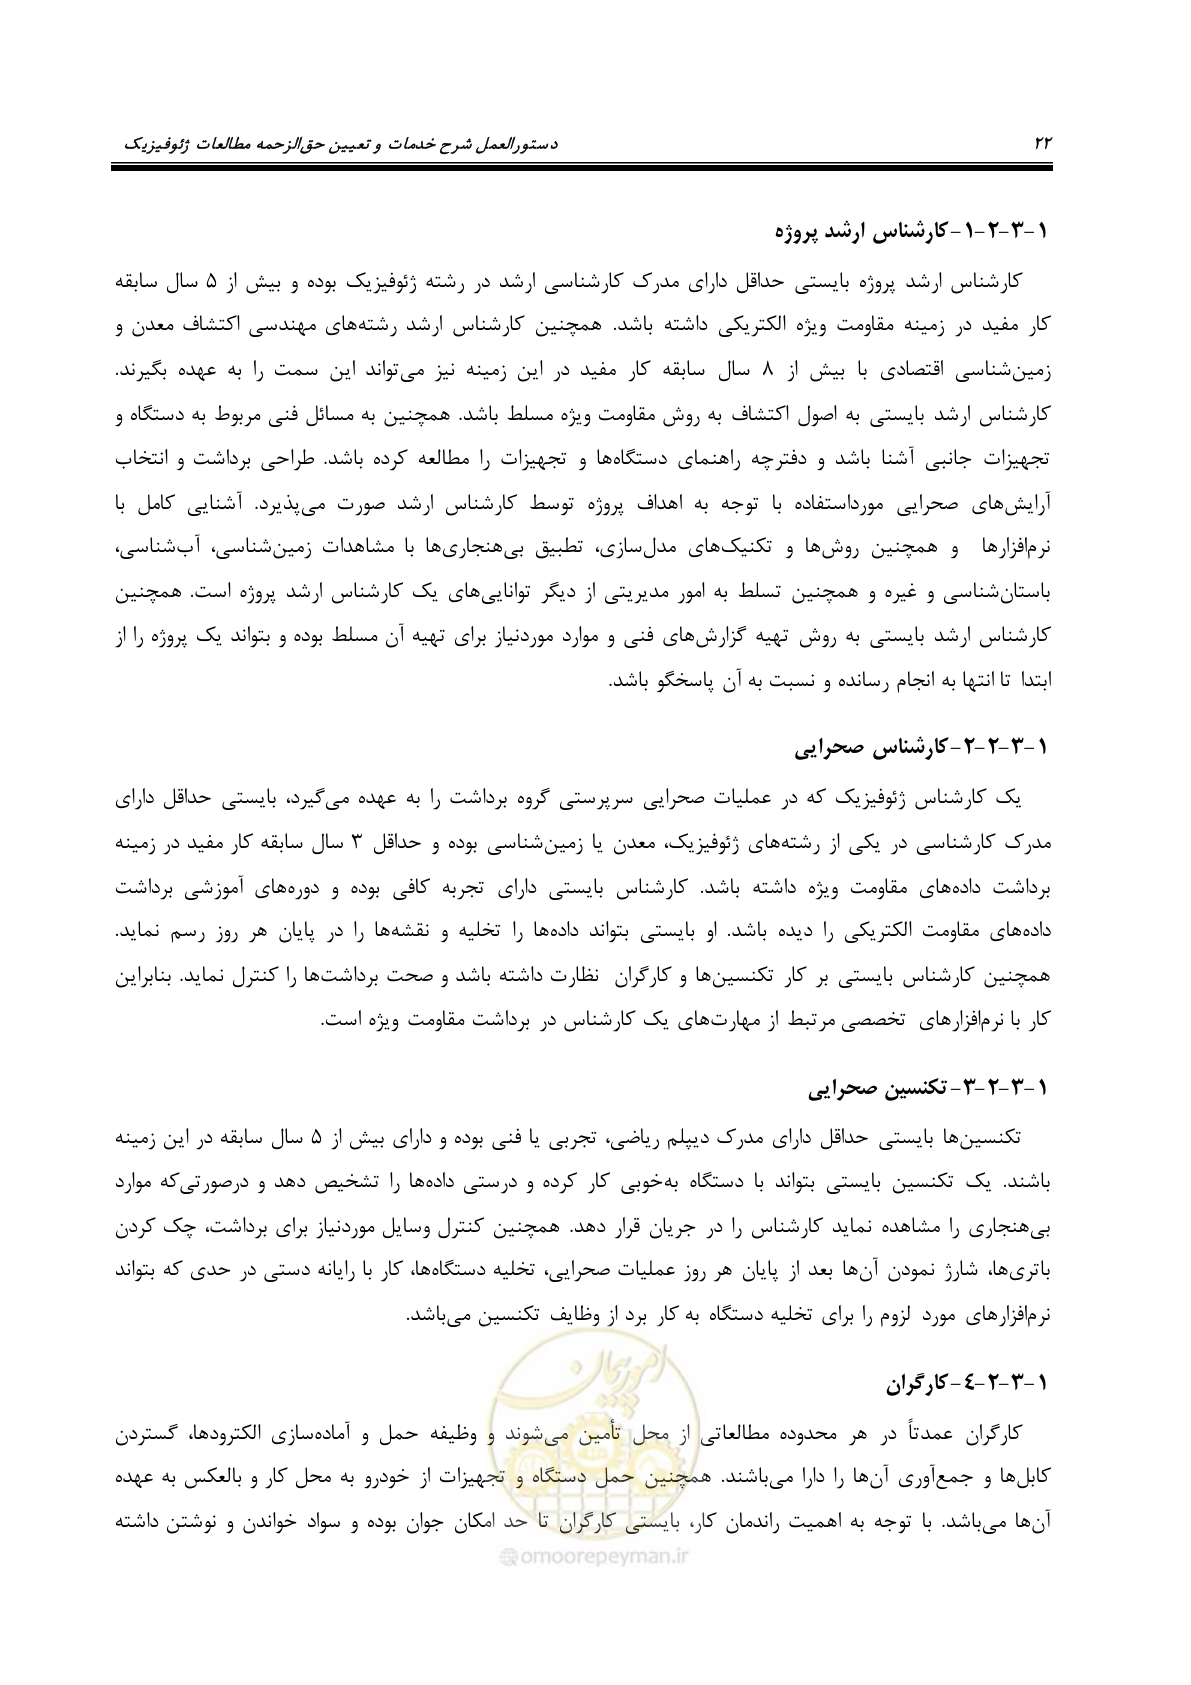 ۲۲ دستورالعمل شرح خدمات و تعیین حق‌الزحمه مطالعات ژئوفیزیک
۱-۳-۲-۱- کارشناس ارشد پروژه
کارشناس ارشد پروژه بایستی حداقل دارای مدرک کارشناسی ارشد در رشته ژئوفیزیک بوده و بیش از ۵ سال سابقه
کار مفید در زمینه مقاومت ویژه الکتریکی داشته باشد. همچنین کارشناس ارشد رشته‌های مهندسی اکتشاف معدن و
زمین‌شناسی اقتصادی با بیش از ۸ سال سابقه کار مفید در این زمینه نیز می‌تواند این سمت را به عهده بگیرند.
کارشناس ارشد بایستی به اصول اکتشاف به روش مقاومت ویژه مسلط باشد. همچنین به مسائل فنی مربوط به دستگاه و
تجهیزات جانبی آشنا باشد و دفترچه راهنمای دستگاه‌ها و تجهیزات را مطالعه کرده باشد. طراحی برداشت و انتخاب
آرایش‌های صحرایی مورداستفاده با توجه به اهداف پروژه توسط کارشناس ارشد صورت می‌پذیرد. آشنایی کامل با
نرم‌افزارها و همچنین روش‌ها و تکنیک‌های مدل‌سازی، تطبیق بی‌هنجاری‌ها با مشاهدات زمین‌شناسی، آب‌شناسی،
باستان‌شناسی و غیره و همچنین تسلط به امور مدیریتی از دیگر توانایی‌های یک کارشناس ارشد پروژه است. همچنین
کارشناس ارشد بایستی به روش تهیه گزارش‌های فنی و موارد موردنیاز برای تهیه آن مسلط بوده و بتواند یک پروژه را از
ابتدا تا انتها به انجام رسانده و نسبت به آن پاسخگو باشد.
۱-۳-۲-۲- کارشناس صحرایی
یک کارشناس ژئوفیزیک که در عملیات صحرایی سرپرستی گروه برداشت را به عهده می‌گیرد، بایستی حداقل دارای
مدرک کارشناسی در یکی از رشته‌های ژئوفیزیک، معدن یا زمین‌شناسی بوده و حداقل ۳ سال سابقه کار مفید در زمینه
برداشت داده‌های مقاومت ویژه داشته باشد. کارشناس بایستی دارای تجربه کافی بوده و دوره‌های آموزشی برداشت
داده‌های مقاومت الکتریکی را دیده باشد. او بایستی بتواند داده‌ها را تخلیه و نقشه‌ها را در پایان هر روز رسم نماید.
همچنین کارشناس بایستی بر کار تکنسین‌ها و کارگران نظارت داشته باشد و صحت برداشت‌ها را کنترل نماید. بنابراین
کار با نرم‌افزارهای تخصصی مرتبط از مهارت‌های یک کارشناس در برداشت مقاومت ویژه است.
۱-۳-۲-۳- تکنسین صحرایی
تکنسین‌ها بایستی حداقل دارای مدرک دیپلم ریاضی، تجربی یا فنی بوده و دارای بیش از ۵ سال سابقه در این زمینه
باشند. یک تکنسین بایستی بتواند با دستگاه به‌خوبی کار کرده و درستی داده‌ها را تشخیص دهد و درصورتی‌که موارد
بی‌هنجاری را مشاهده نماید کارشناس را در جریان قرار دهد. همچنین کنترل وسایل موردنیاز برای برداشت، چک کردن
باتری‌ها، شارژ نمودن آن‌ها بعد از پایان هر روز عملیات صحرایی، تخلیه دستگاه‌ها، کار با رایانه دستی در حدی که بتواند
نرم‌افزارهای مورد لزوم را برای تخلیه دستگاه به کار برد از وظایف تکنسین می‌باشد.
۱-۳-۲-٤- کارگران
کارگران عمدتاً در هر محدوده مطالعاتی از محل تأمین می‌شوند و وظیفه حمل و آماده‌سازی الکترودها، گستردن
کابل‌ها و جمع‌آوری آن‌ها را دارا می‌باشند. همچنین حمل دستگاه و تجهیزات از خودرو به محل کار و بالعکس به عهده
آن‌ها می‌باشد. با توجه به اهمیت راندمان کار، بایستی کارگران تا حد امکان جوان بوده و سواد خواندن و نوشتن داشته
امور پیمان
@omoorepeyman.ir